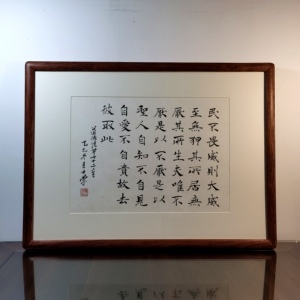 民不畏威則大威
至無狎其所居無
厭其所生夫唯不
厭是以不厭是以
聖人自知不自見
自愛不自貴故去
彼取此
道德經第七十二章
乙巳年